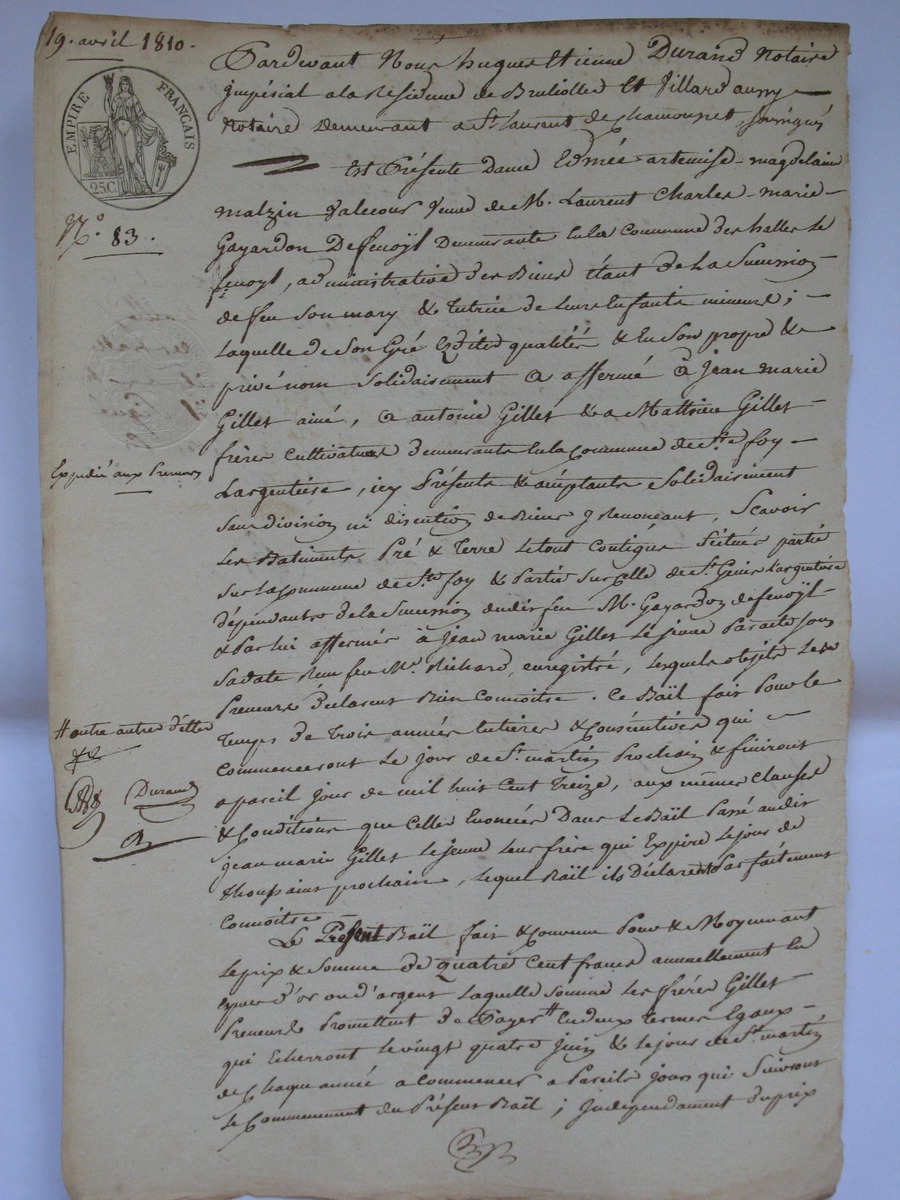 19. avril 1810.
EMPIRE FRANÇAIS
25C.
N.o 83.
Expédié aux Preneurs
# outre autres d'elles
Durand
Pardevant Nous hugues Etienne Durand Notaire
impérial a la Résidence de Brullioles Et Villard aussy
Notaire Demeurant a St. laurent de Chamousset, soussignés
Est Présente Dame Edmée artemise magdelaine
malzin valcour veuve de M. Laurent Charles marie
Gayardon Defenoÿl Demeurante En la Commune des halles le
fenoyl, administrative des Biens Etant de la Succession
de feu Son mary & Tutrice de leurs Enfants mineurs;
Laquelle de Son Gré Esdites qualités & En Son propre &
privé nom Solidairement a affermé à jean marie
Gillet ainé, a antoine Gillet & a Mathieu Gillet
frères Cultivateurs demeurants En la Commune de Ste. foy
Largentière, icy Présents & acceptants Solidairement
Sans division ni discution de Biens y Renonçant, Scavoir
Les Batiments Pré & Terre Letout Contigus Scitués partie
Sur la Commune de Ste. foy & Partie Sur Celle de St. Genis Largentière
dépendants de la Succession dudit feu M. Gayardon defenoÿl
& Par lui affermés à jean marie Gillet Le jeune Par acte sous
Sa date Reçu feu Me. Richard, enregistré, lesquels objets Les
Preneurs déclarent Bien Connoitre. Ce Baïl fait Pour le
Temps de Trois années Entières & Consécutives qui
Commenceront Le jour de St. martin Prochain & finiront
a pareil jour de mil huit Cent Treize, aux mêmes Clauses
& Conditions que Celles Enoncées Dans Le Baïl Passé audit
jean marie Gillet Le jeune Leur frère qui Expire Le jour de
thoussaint prochain, Lequel Baïl ils Déclarent Parfaitement
Connoitre
Le Présent Baïl fait & Convenu Pour & Moyennant
Le prix & Somme de quatre Cent francs annuellement En
espèces d'or ou d'argent Laquelle Somme Les frères Gillet
Preneurs Promettent de Payer # En deux termes Egaux
qui Echerront Le vingt quatre juin & Le jour de St. martin
de Chaque année a Commencer a Pareils jours qui Suivront
Le Commencement du Présent Baïl; independament du prix